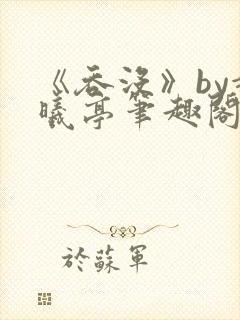 《吞没》by
曦亭筆趣閣
於蘇軍